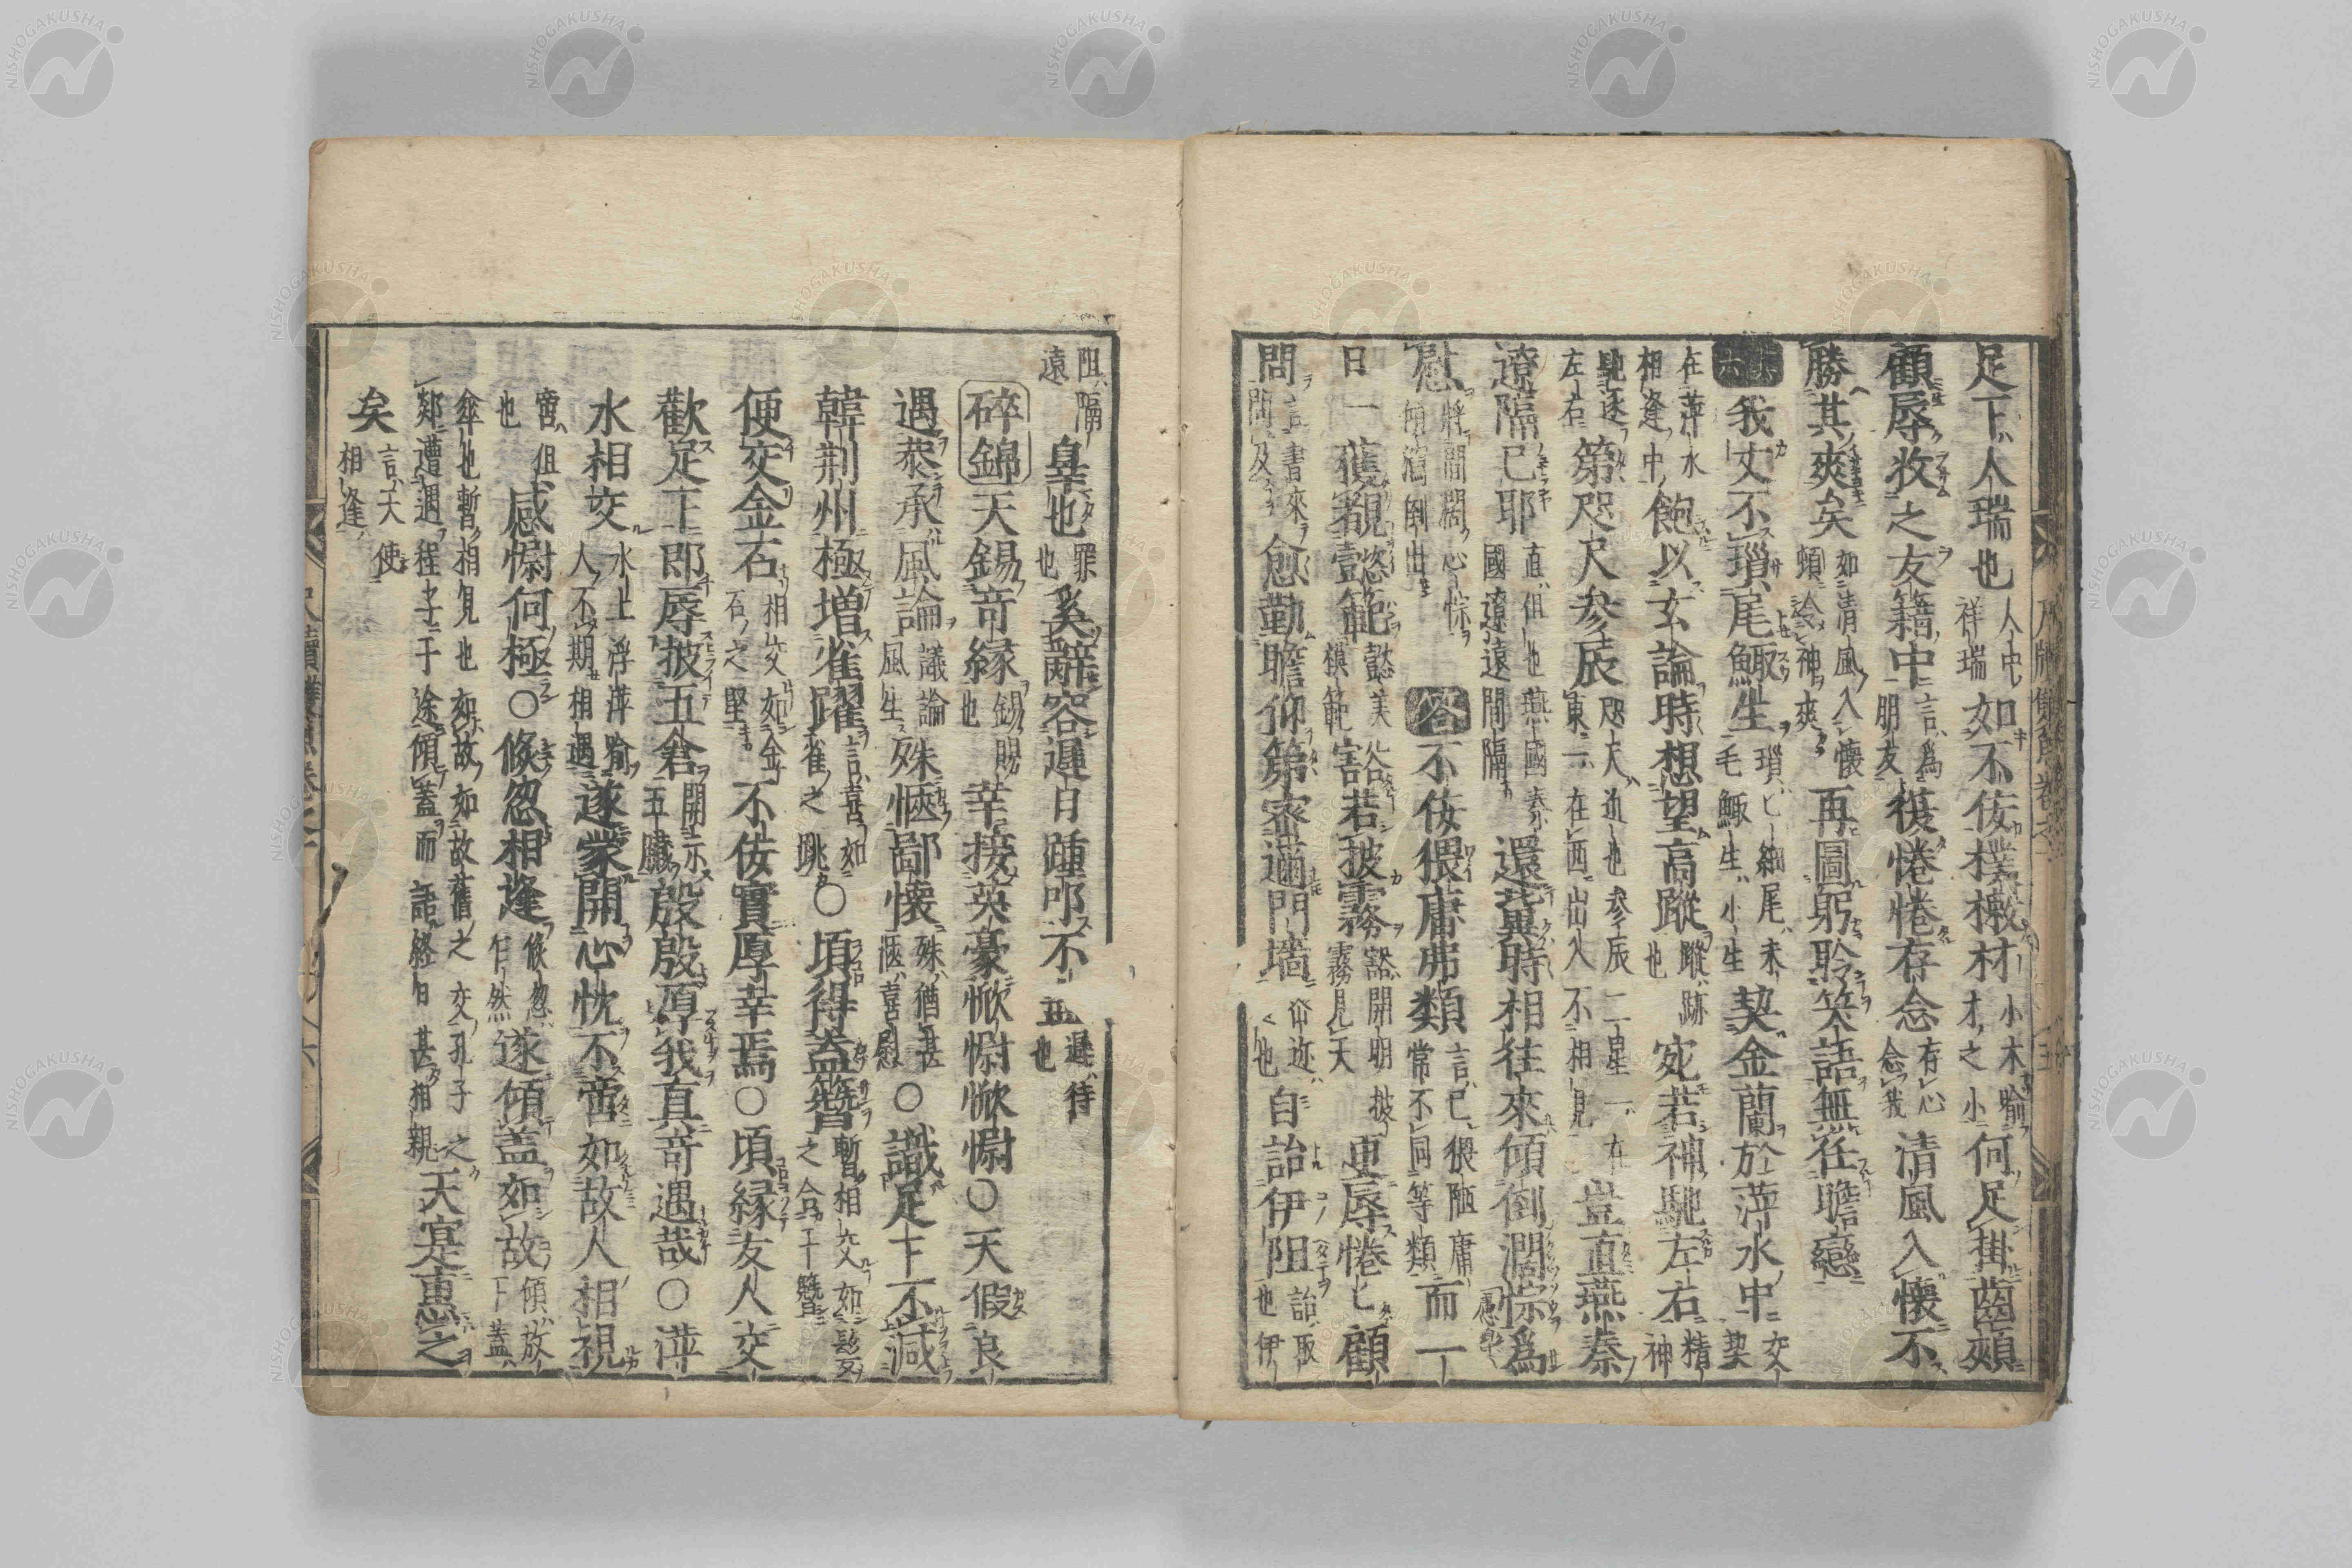 足下人瑞也 人中祥瑞 如不佞樸樕材 小木喻才之小 何足掛齒頰
顧辱收之友籍中 言爲朋友 復惓惓存念 存心念我 清風入懷不
勝其爽矣 如清風入懷頰給神爽 再圖躬聆笑語無任瞻戀
其六 我丈不瑣尾鯫生 瑣細尾末毛鯫生小生 契金蘭於萍水中 交契
在萍水相逢中 飽以玄論時想望高蹤 蹤跡也 宛若神馳左右 精神
馳逐左右 第咫尺参辰 咫尺近也参辰二星一在東一在西出入不相見 豈直燕秦
遼隔已耶 直但也燕國秦國遼遠間隔 還冀時相往來傾倒濶悰爲
慰 將間闊心悰傾瀉倒出 答 不佞猥庸弗類 言己猥陋庸常不同等類 而一
日一獲覩懿範 懿美模範 豁若披霧 豁開明披霧見天 更辱惓〻顧
問 言書來問及 愈勤瞻仰第密邇門墻 密迩近也 自詒伊阻 詒取也伊
阻隔遠 辠也 罪也 奚辭容遲日踵叩不一 遲待也
碎錦 天錫奇緣 錫賜也 幸接英豪慚慰慚慰○天假良
遇恭承風論 議論風生 殊愜鄙懷 殊猶甚愜喜慰 ○識足下不減
韓荆州極増雀躍 言喜如雀之跳 ○頃得蓋簪 暫相交如髮之合于簪 
便交金石 相交如金石之堅 不佞實厚幸焉○頃緣友人交
歡足下即辱披五倉 開示五臟 殷殷厚我真奇遇哉○萍
水相交 水上浮萍喻人不期相遇 遂蒙開心忱不啻如故人相視
啻但也 感慰何極○倏忽相逢 倏忽乍然 遂傾盖如故 傾放下蓋
傘也暫相見也如故如故舊之交孔子之郯遭遇程子于途傾蓋而語終日甚相親 天寔惠之
矣 言天使相逢
尺牘雙魚卷之一 五
尺牘雙魚卷之一 六
NISHOGAKUSHA